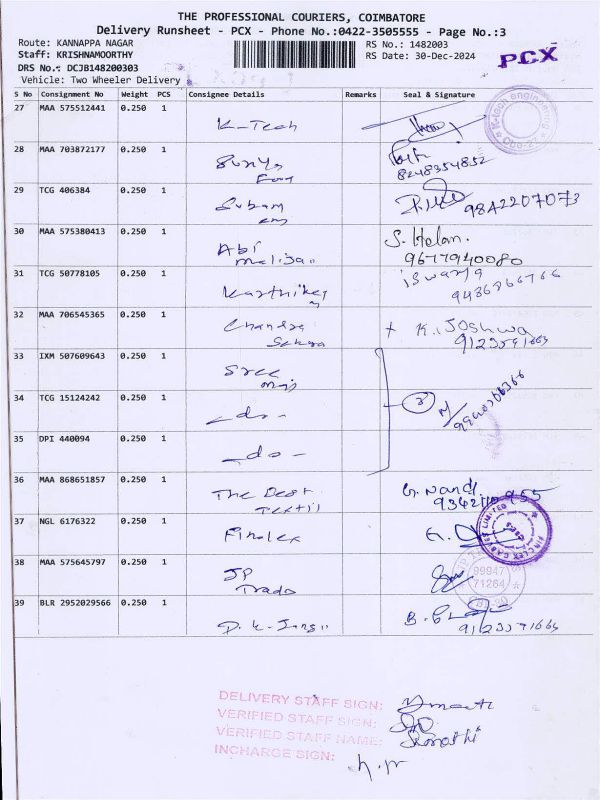 THE PROFESSIONAL COURIERS, COIMBATORE
Delivery Runsheet - PCX - Phone No.:0422-3505555 - Page No.:3
Route: KANNAPPA NAGAR
RS No.: 1482003
Staff: KRISHNAMOORTHY
RS Date: 30-Dec-2024
PCX
DRS No.: DCJB148200303
Vehicle: Two Wheeler Delivery
S No Consignment No Weight PCS Consignee Details Remarks Seal & Signature
27 MAA 575512441 0.250 1
K-Tech
28 MAA 703872177 0.250 1
8248354852
29 TCG 406384 0.250 1
Subam
9842207073
30 MAA 575380413 0.250 1
Abi
S. Helan.
9677940080
31 TCG 50778105 0.250 1
Karthikey
iswarya
32 MAA 706545365 0.250 1
Chandra
K. Joshwa
33 IXM 507609643 0.250 1
Sree
34 TCG 15124242 0.250 1
-do-
35 DPI 440094 0.250 1
-do-
36 MAA 868651857 0.250 1
The Best
G. Nandi
37 NGL 6176322 0.250 1
Finolex
38 MAA 575645797 0.250 1
JP
Trade
99947
71264
39 BLR 2952029566 0.250 1
DELIVERY STAFF SIGN:
VERIFIED STAFF SIGN:
VERIFIED STAFF NAME:
INCHARGE SIGN: